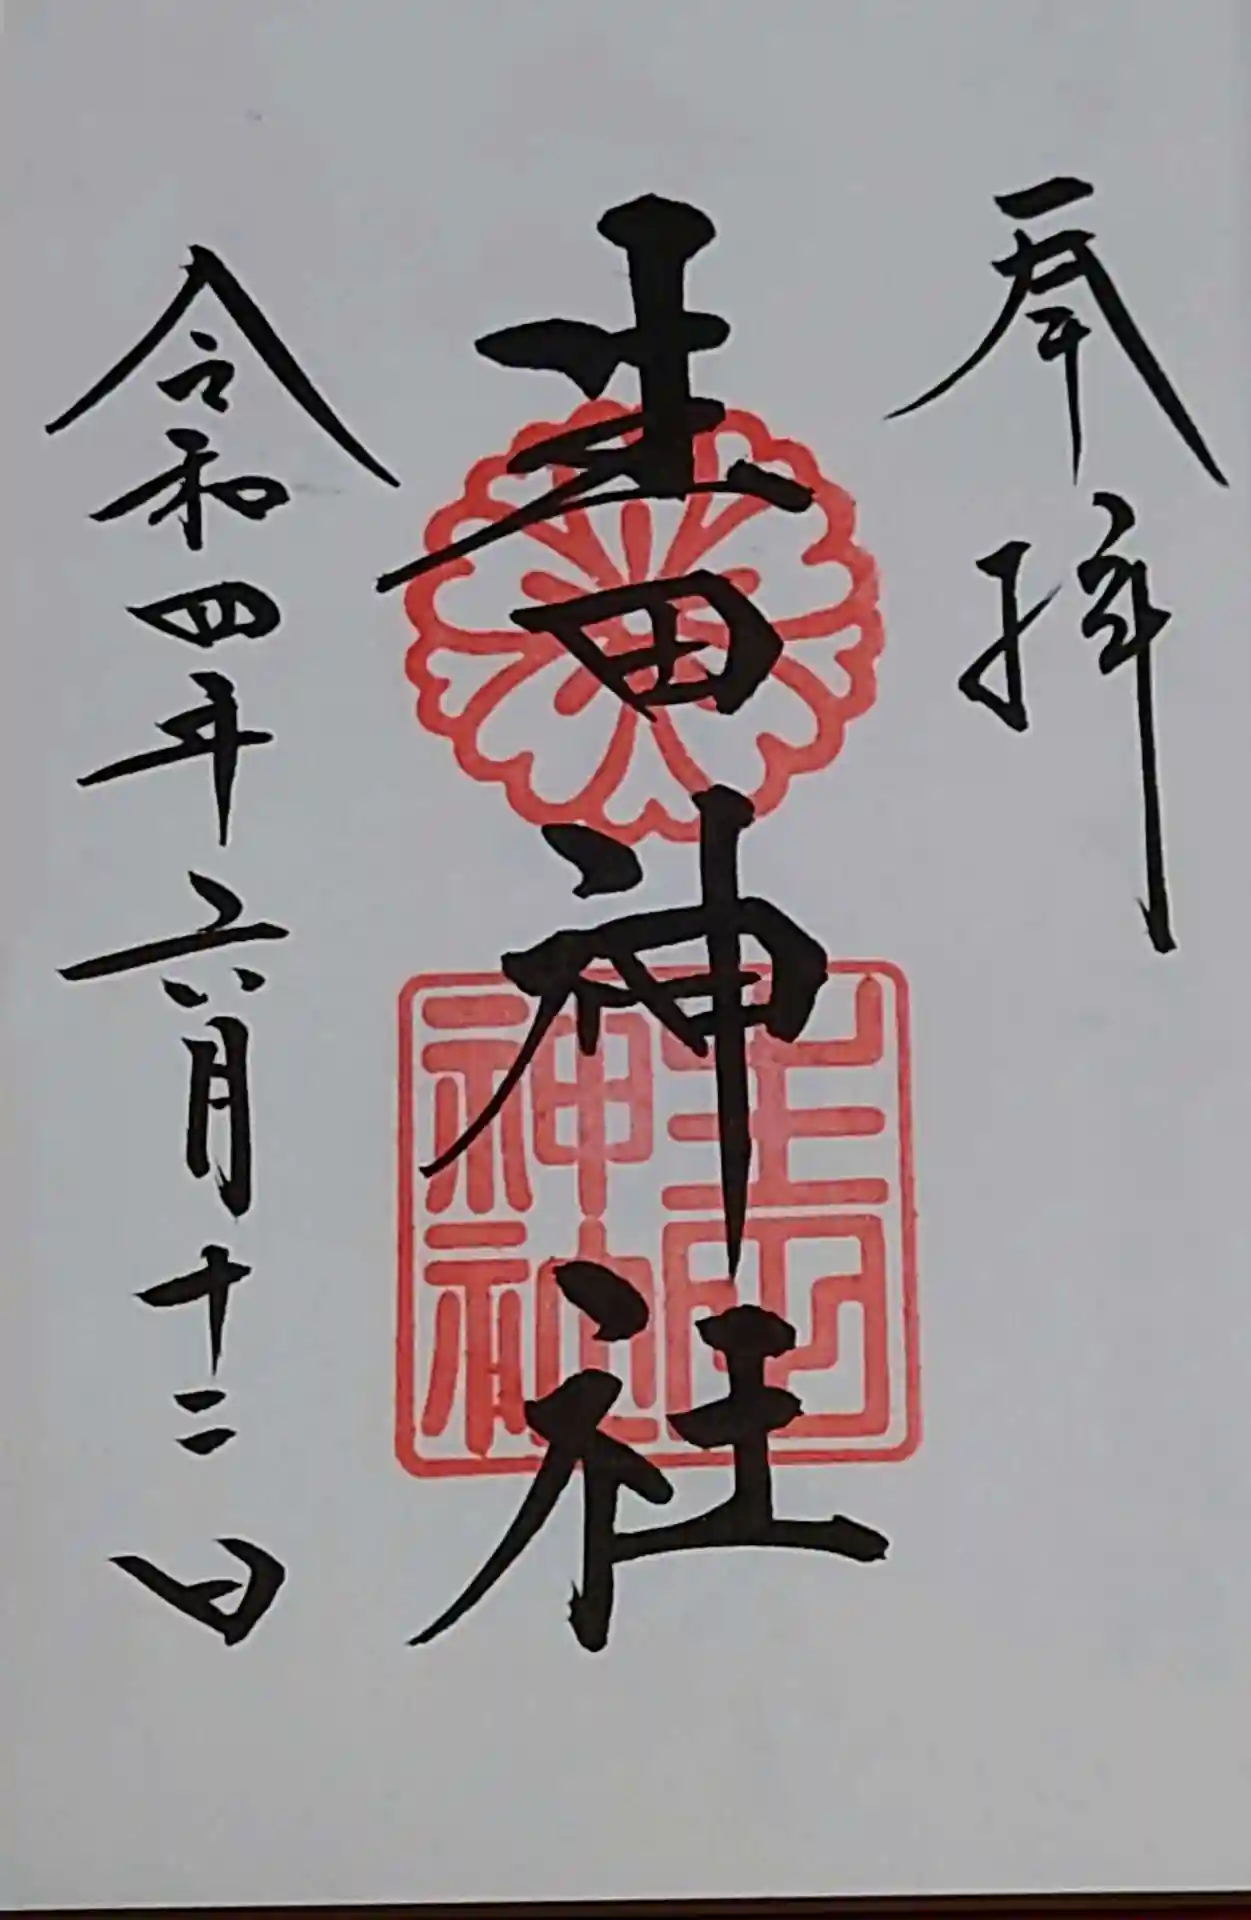 奉拝
生田神社
生田神社
令和四年六月十二日